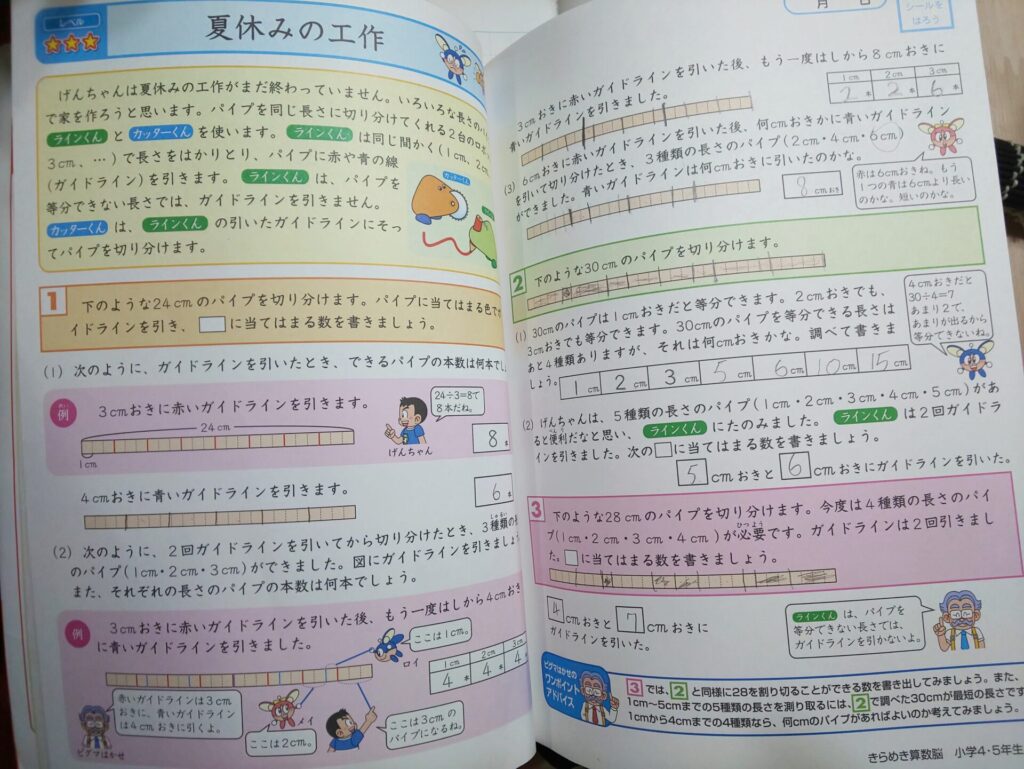 レベル
夏休みの工作
げんちゃんは夏休みの工作がまだ終わっていません。いろいろな長さのパ
で家を作ろうと思います。パイプを同じ長さに切り分けてくれる2台のロボ
ラインくん と カッターくん を使います。 ラインくん は同じ間かく(1cm、2cm
3cm、…)で長さをはかりとり、パイプに赤や青の線
(ガイドライン)を引きます。 ラインくん は、パイプを
等分できない長さでは、ガイドラインを引きません。
カッターくん は、 ラインくん の引いたガイドラインにそっ
てパイプを切り分けます。
カッターくん
1 下のような24cmのパイプを切り分けます。パイプに当てはまる色でガ
イドラインを引き、□に当てはまる数を書きましょう。
(1) 次のように、ガイドラインを引いたとき、できるパイプの本数は何本でし
れい
例 3cmおきに赤いガイドラインを引きます。
24cm
1cm
24÷3=8で
8本だね。
げんちゃん
8本
4cmおきに青いガイドラインを引きます。
6本
(2) 次のように、2回ガイドラインを引いてから切り分けたとき、3種類の
のパイプ(1cm・2cm・3cm)ができました。図にガイドラインを引きましょ
また、それぞれの長さのパイプの本数は何本でしょう。
例 3cmおきに赤いガイドラインを引いた後、もう一度はしから4cmおき
に青いガイドラインを引きました。
ここは1cm。
ロイ
1cm 2cm 3cm
4本 4本 4
赤いガイドラインは3cm
おきに、青いガイドライン
は4cmおきに引くよ。
ピグマはかせ
メイ
ここは2cm。
ここは3cmの
パイプになるね。
月 日
シールを
はろう
3cmおきに赤いガイドラインを引いた後、もう一度はしから8cmおきに
青いガイドラインを引きました。
1cm 2cm 3cm
2本 2本 6本
(3) 6cmおきに赤いガイドラインを引いた後、何cmおきかに青いガイドライン
を引いて切り分けたとき、3種類の長さのパイプ(2cm・4cm・6cm)
ができました。青いガイドラインは何cmおきに引いたのかな。
8cmおき
赤は6cmおきね。もう
1つの青は6cmより長い
のかな。短いのかな。
2 下のような30cmのパイプを切り分けます。
(1) 30cmのパイプは1cmおきだと等分できます。2cmおきでも、
3cmおきでも等分できます。30cmのパイプを等分できる長さは
あと4種類ありますが、それは何cmおきかな。調べて書きま
しょう。
1cm 2cm 3cm 5cm 6cm 10cm 15cm
4cmおきだと
30÷4=7
あまり2で、
あまりが出るから
等分できないね。
(2) げんちゃんは、5種類の長さのパイプ(1cm・2cm・3cm・4cm・5cm)があ
ると便利だなと思い、 ラインくん にたのみました。 ラインくん は2回ガイドラ
インを引きました。次の□に当てはまる数を書きましょう。
5cmおきと6cmおきにガイドラインを引いた。
3 下のような28cmのパイプを切り分けます。今度は4種類の長さのパイ
プ(1cm・2cm・3cm・4cm)が必要です。ガイドラインは2回引きまし
た。□に当てはまる数を書きましょう。
4cmおきと7cmおきに
ガイドラインを引いた。
ラインくん は、パイプを
等分できない長さでは、
ガイドラインを引かないよ。
ピグマはかせの
ワンポイント
アドバイス
3では、2と同様に28を割り切ることができる数を書き出してみましょう。また、
1cm~5cmまでの5種類の長さを測り取るには、2で調べた30cmが最短の長さです
1cmから4cmまでの4種類なら、何cmのパイプがあればよいのか考えてみましょう。
きらめき算数脳 小学4・5年生